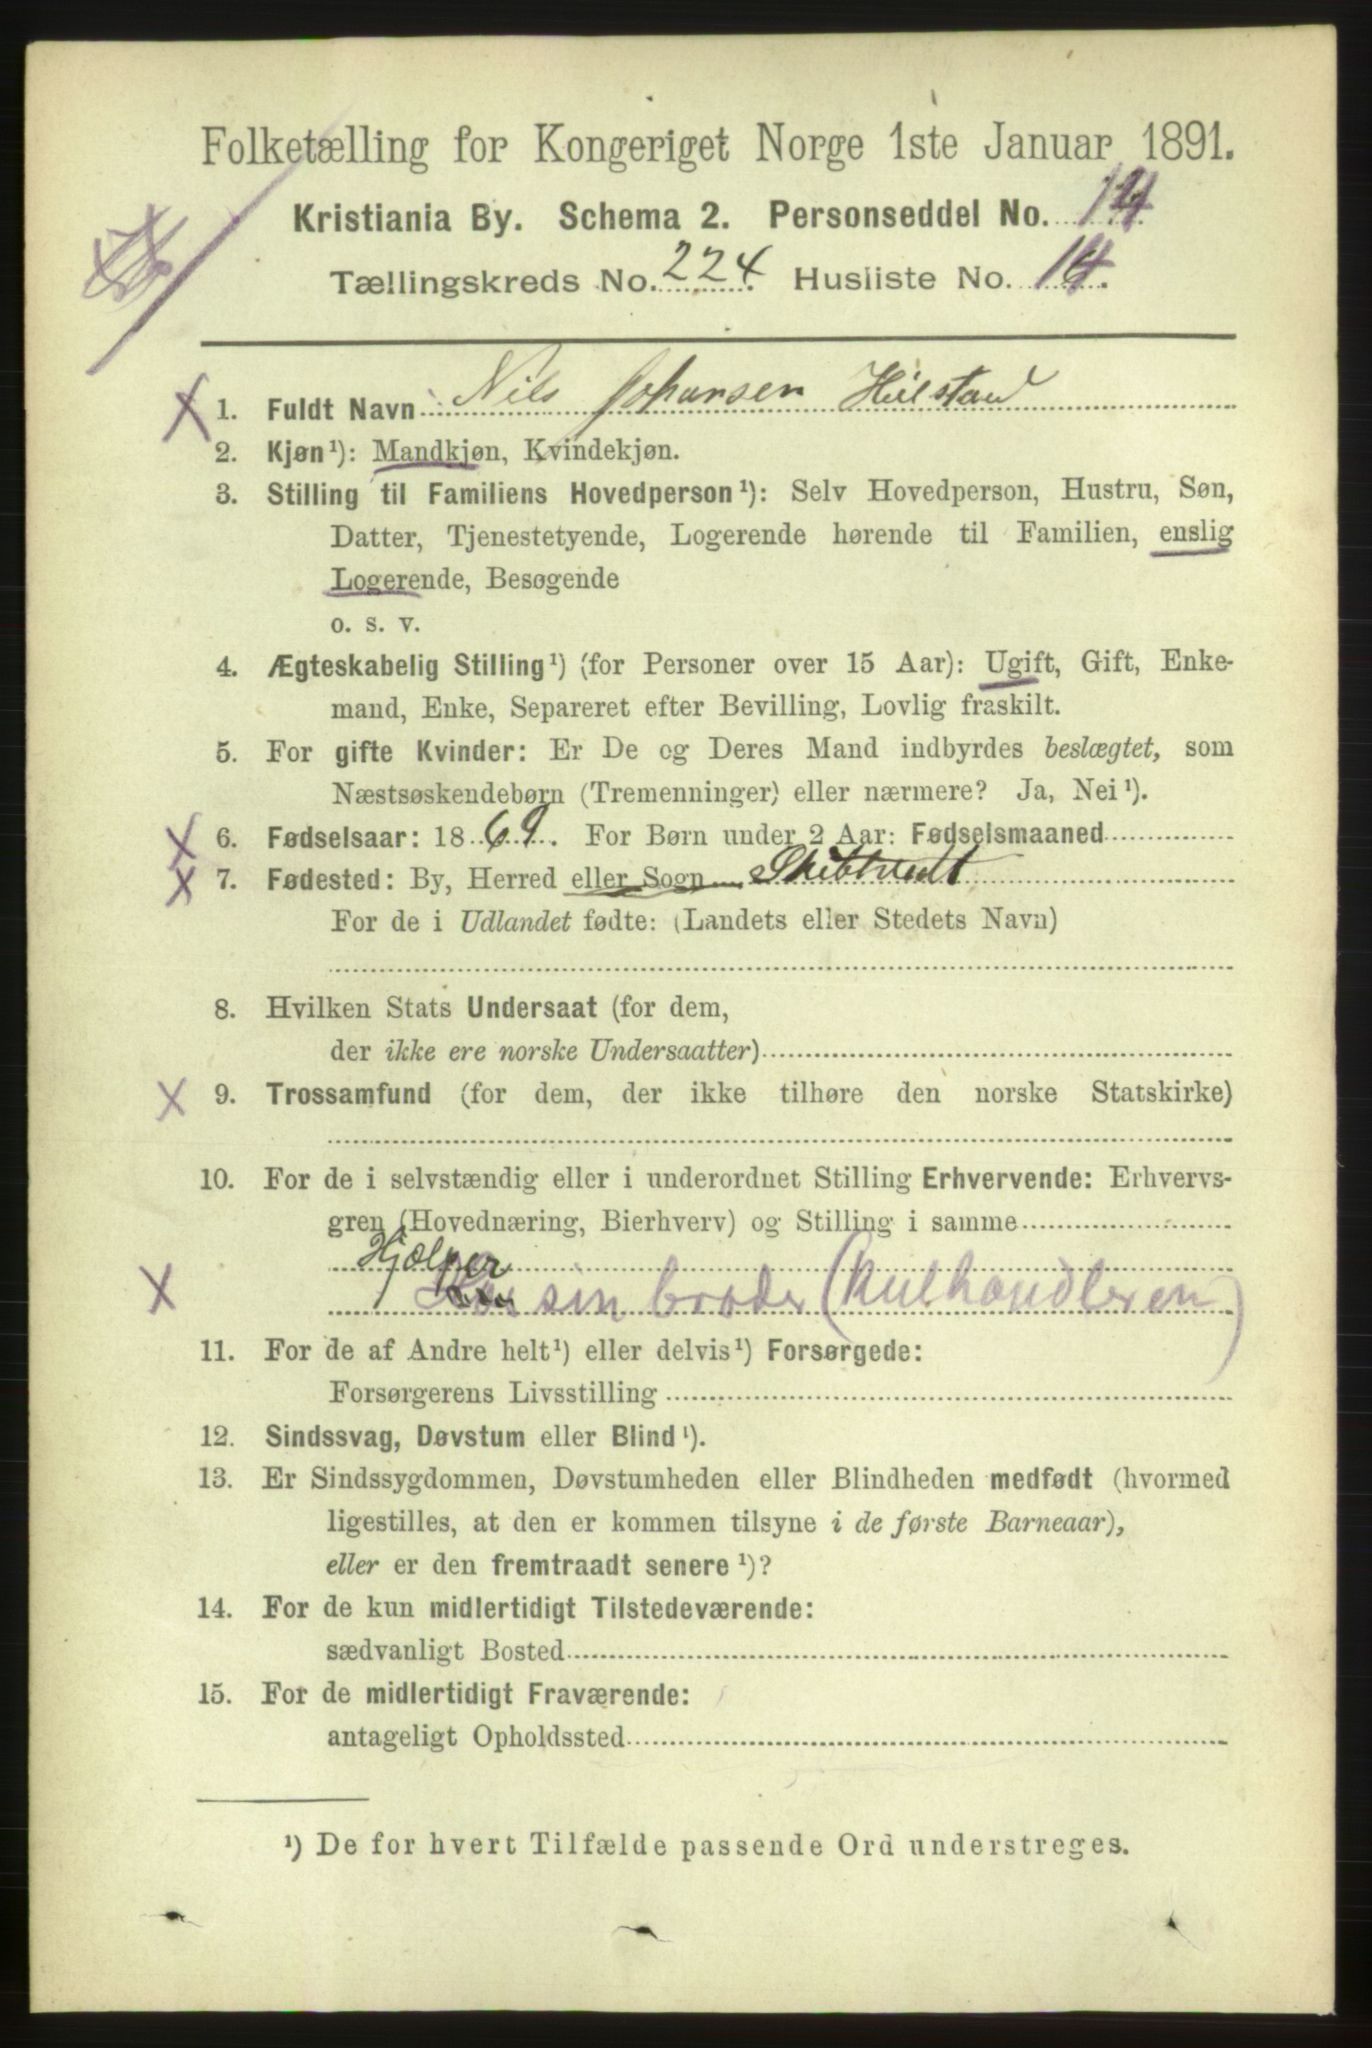 Folketælling for Kongeriget Norge 1ste Januar 1891.
Kristiania By. Schema 2. Personseddel No. 14
Tællingskreds No. 224. Husliste No. 14.
1. Fuldt Navn Nils Johansen Hulstad
2. Kjøn¹): Mandkjøn, Kvindekjøn.
3. Stilling til Familiens Hovedperson¹): Selv Hovedperson, Hustru, Søn,
Datter, Tjenestetyende, Logerende hørende til Familien, enslig
Logerende, Besøgende
o. s. v.
4. Ægteskabelig Stilling¹) (for Personer over 15 Aar): Ugift, Gift, Enke-
mand, Enke, Separeret efter Bevilling, Lovlig fraskilt.
5. For gifte Kvinder: Er De og Deres Mand indbyrdes beslægtet, som
Næstsøskendebørn (Tremenninger) eller nærmere? Ja, Nei¹).
6. Fødselsaar: 1869. For Børn under 2 Aar: Fødselsmaaned
7. Fødested: By, Herred eller Sogn Skibtvedt
For de i Udlandet fødte: (Landets eller Stedets Navn)
8. Hvilken Stats Undersaat (for dem,
der ikke ere norske Undersaatter)
9. Trossamfund (for dem, der ikke tilhøre den norske Statskirke)
10. For de i selvstændig eller i underordnet Stilling Erhvervende: Erhvervs-
gren (Hovednæring, Bierhverv) og Stilling i samme
Hjælper
sin broder (kulhandleren)
11. For de af Andre helt¹) eller delvis¹) Forsørgede:
Forsørgerens Livsstilling
12. Sindssvag, Døvstum eller Blind¹).
13. Er Sindssygdommen, Døvstumheden eller Blindheden medfødt (hvormed
ligestilles, at den er kommen tilsyne i de første Barneaar),
eller er den fremtraadt senere¹)?
14. For de kun midlertidigt Tilstedeværende:
sædvanligt Bosted
15. For de midlertidigt Fraværende:
antageligt Opholdssted
¹) De for hvert Tilfælde passende Ord understreges.